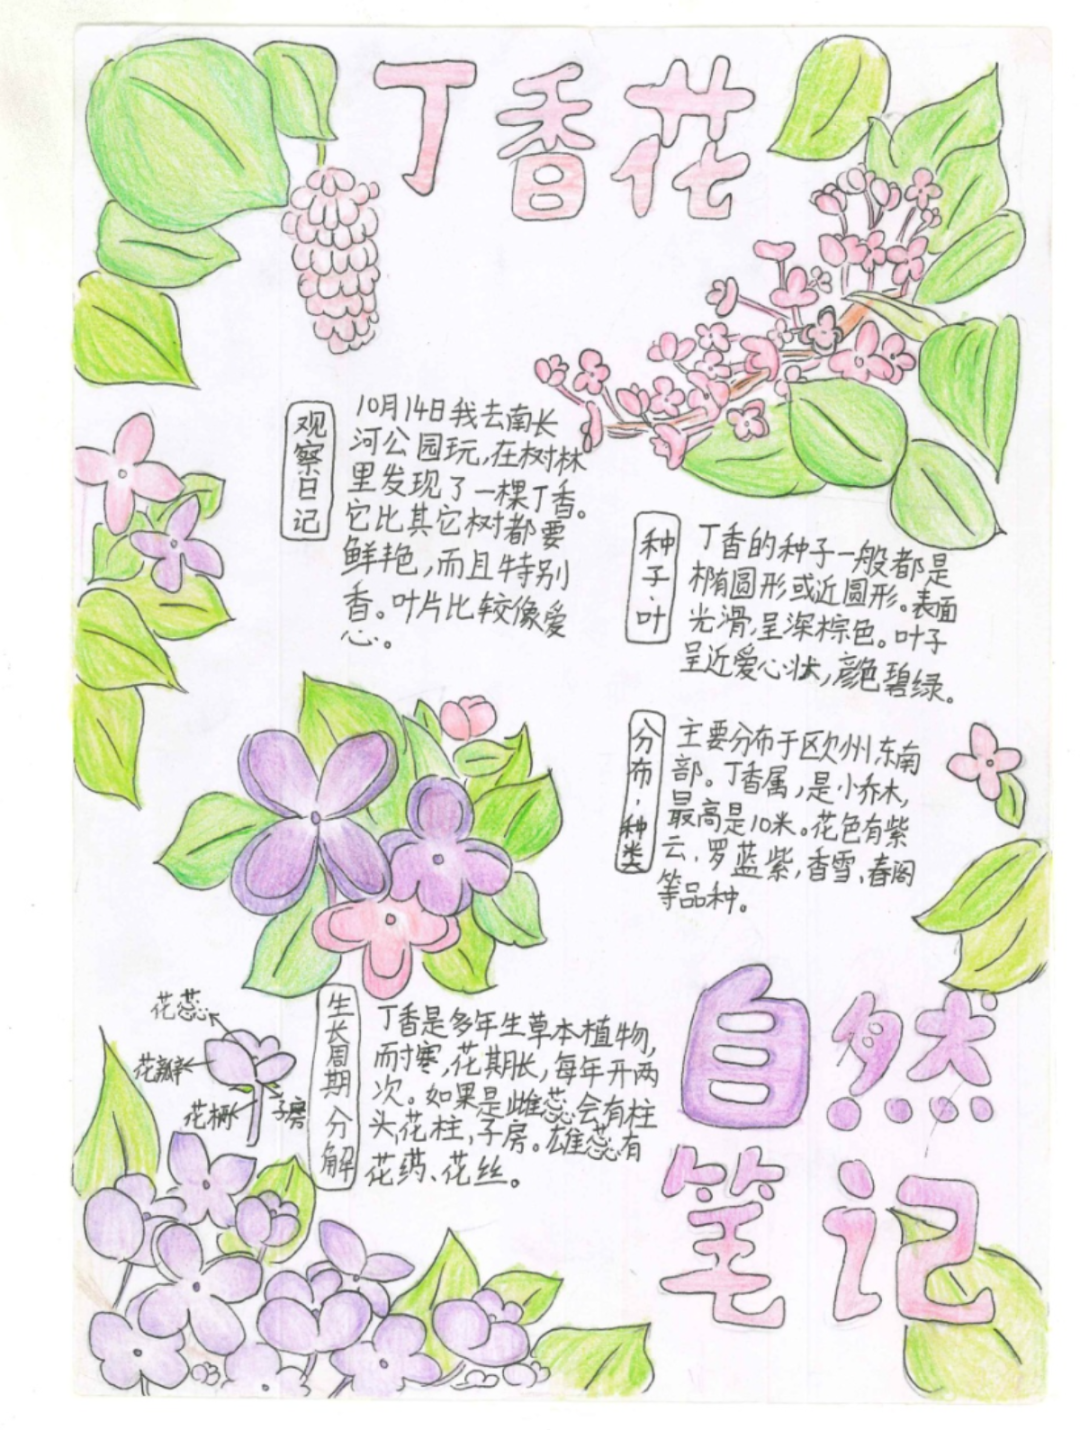 丁香花
观察日记
10月14日我去南长
河公园玩,在树林
里发现了一棵丁香。
它比其它树都要
鲜艳,而且特别
香。叶片比较像爱
心。
种子·叶
丁香的种子一般都是
椭圆形或近圆形。表面
光滑,呈深棕色。叶子
呈近爱心状,颜色碧绿。
分布·种类
主要分布于欧州东南
部。丁香属,是小乔木,
最高是10米。花色有紫
云、罗蓝紫,香雪、春阁
等品种。
花蕊
花瓣
花柄
子房
生长周期分解
丁香是多年生草本植物,
耐寒,花期长,每年开两
次。如果是雌蕊会有柱
头,花柱,子房。雄蕊有
花药、花丝。
自然
笔记